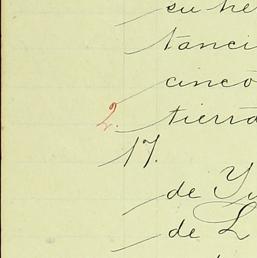 su he
tanci
cinco
2. tierra
17.
de Yu
de L